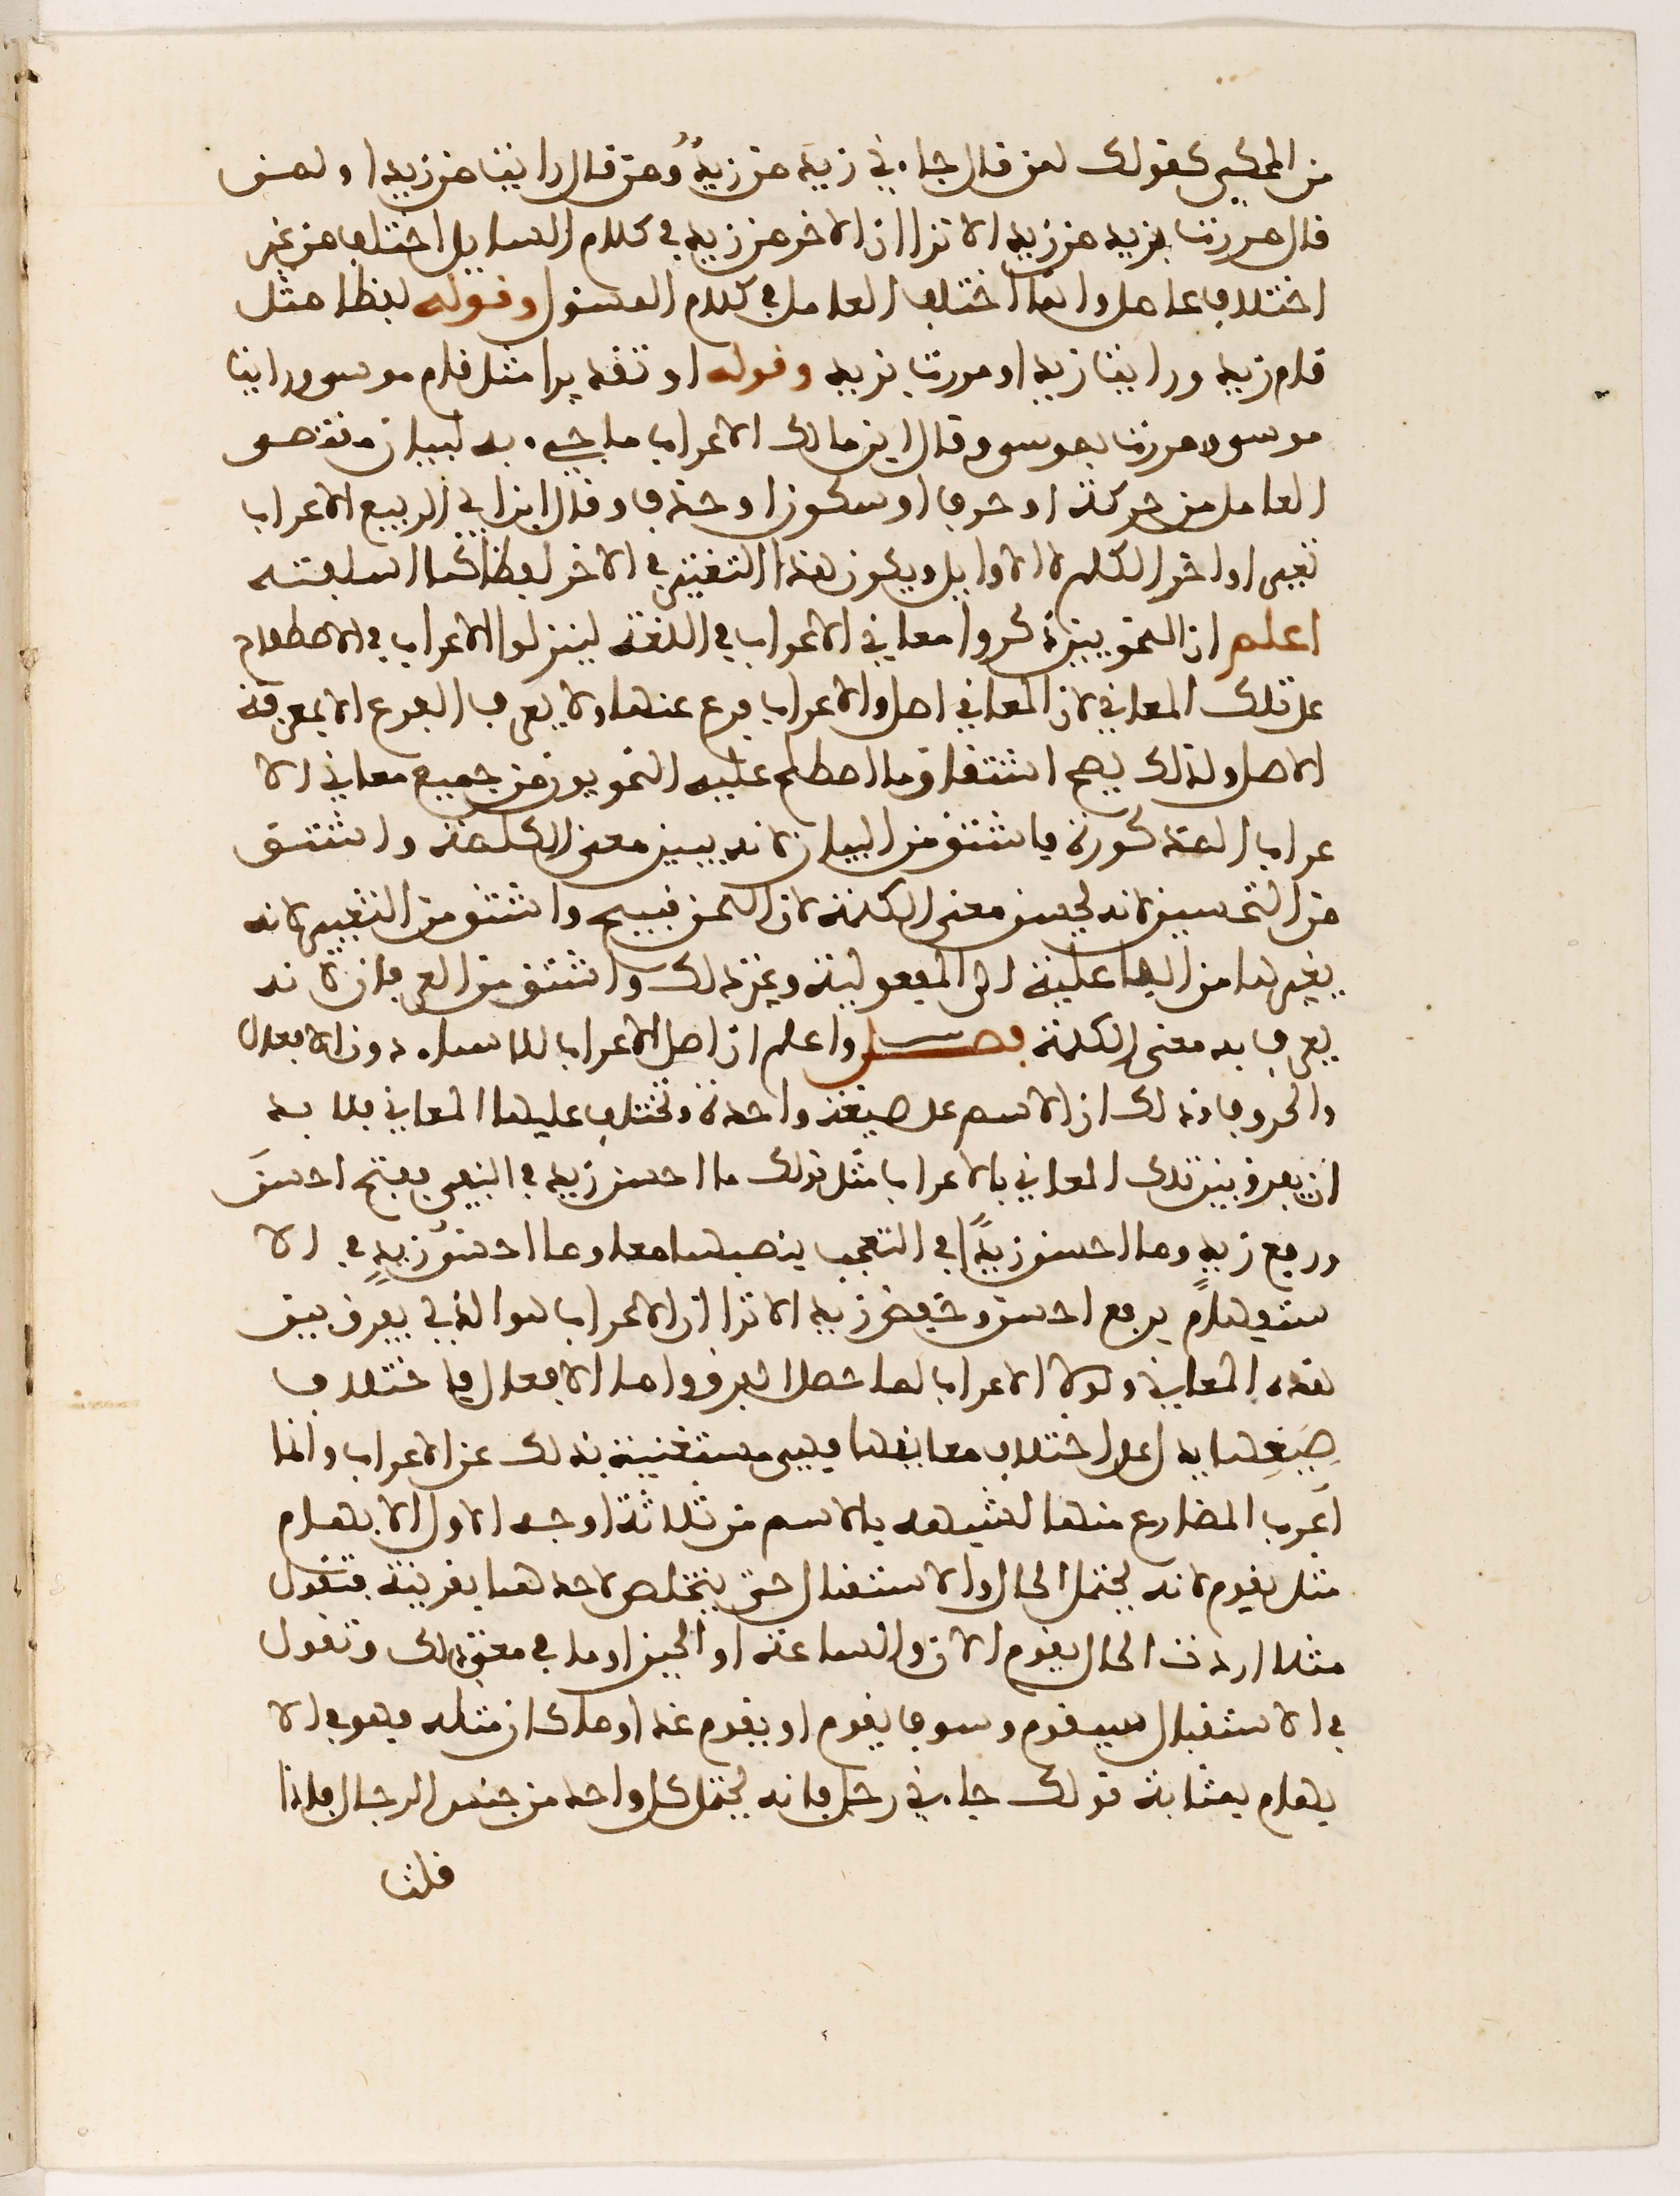 من المحكي كقولك لمن قال جاءني زيد من زيدٌ ومن قال رايت من زيدا ولمن
قال مررت بزيد من زيد الا ترا ان الاخر من زيد في كلام السايل اختلف من غير
اختلاف عامل وانما اختلف العامل في كلام المسئول وقوله لفظا مثل
قام زيد ورايت زيدا ومررت بزيد وقوله او تقديرا مثل قام موسى ورايت
موسى ومررت بموسى وقال ابن مالك الاعراب ما جيء به لبيان مقتضى
العامل من حركة او حرف او سكون او حذف وقال ابن ابي الربيع الاعراب
تغيير اواخر الكلم لا الاوايل ويكون هذا التغيير في الاخر لفظا
اعلم ان النحويين ذكروا معاني الاعراب في اللغة لينزلوا الاعراب في الاصطلاح
على تلك المعاني لان المعاني اصل والاعراب فرع عنها ولا يعرف الفرع الا بمعرفة
الاصل ولذلك يصح اشتقاق ما اصطلح عليه النحويون من جميع معاني الا
عراب المذكورة فاشتق من البيان لانه يبين معنى الكلمة واشتق
من التحسين لانه يحسن معنى الكلمة لان اللحن قبيح واشتق من التغيير لانه
يغيرها من الفاعلية الى المفعولية وغير ذلك واشتق من العرفان لانه
يعرف به معنى الكلمة فصل واعلم ان اصل الاعراب للاسماء دون الافعال
والحروف وذلك ان الاسم على صيغة واحدة وتختلف عليها المعاني فلا بد
ان يفرق بين تلك المعاني بالاعراب مثل قولك ما احسن زيد في النفي بفتح احسنَ
ورفع زيد وما احسن زيدًا في التعجب بنصبهما معا وما احسنُ زيدٍ في الا
ستفهامِ برفع احسن وخفض زيد الا ترا ان الاعراب هو الذي يفرق بين
هذه المعاني ولولا الاعراب لما حصل الفرق واما الافعال فاختلاف
صِيَغِها يدل على اختلاف معانيها فهي مستغنية بذلك عن الاعراب وانما
اُعرب المضارع منها لشبهه بالاسم من ثلاثة اوجه الاول الابهام
مثل يقوم لانه يحتمل الحال والاستقبال حتى يتخلص لاحدهما بقرينة فتقول
مثلا اردت الحال يقوم الان والساعة او الحين او ما في معنى ذلك وتقول
في الاستقبال سيقوم وسوف يقوم او يقوم غدا وما كان مثله فهو في الا
بهام بمثابة قولك جاءني رجل فانه يحتمل كل واحد من جنس الرجال فاذا
قلت